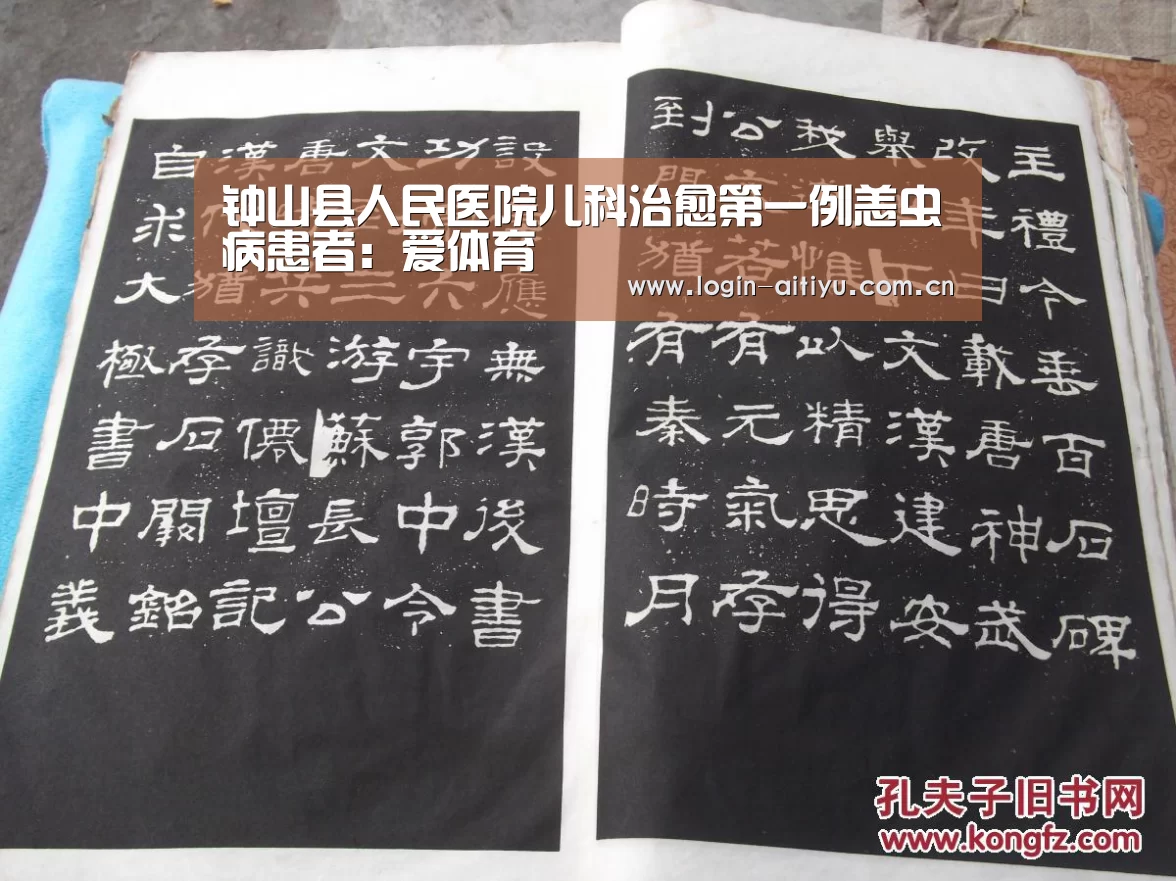 钟山县人民医院儿科治愈第一例恙虫
病患者：爱体育
www.login-aitiyu.com.cn
主禮今垂百石碑
改年曰載唐神武
舉正文漢建安
我惟以精思得
公若有元氣存
到門猶有秦時月
設應無漢後書
功六宇郭中令
文三游蘇長公
唐共識儦壇記
漢猶存石闕銘
自求大極書中義
孔夫子旧书网
www.kongfz.com